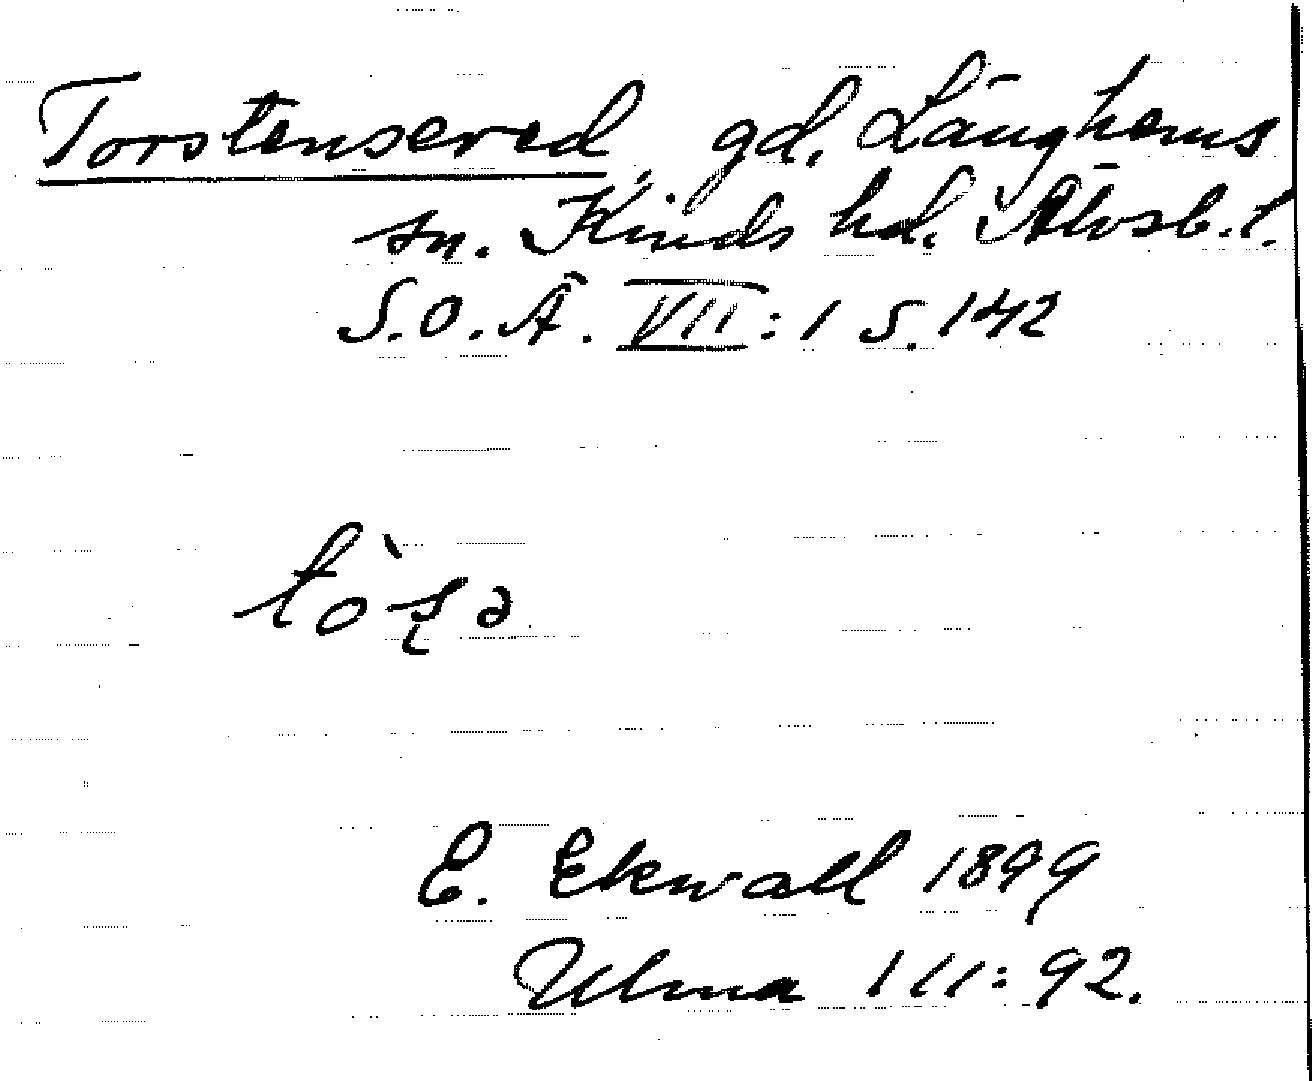 Torstensered, gd, Länghems
sn. Kinds hd. Älvsb. l.
S.O.Ä. VII:1 s. 142
E. Ekwall 1899
Ulma 111:92.